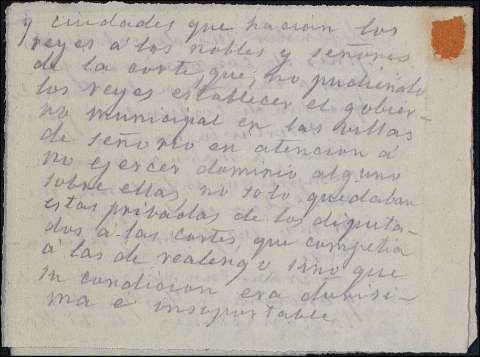 y ciudades que hacian los
reyes á los nobles y señores
de la corte, que, no pudiendo
los reyes establecer el gobier-
no municipal en las villas
de señorio en atencion á
no ejercer dominio alguno
sobre ellas, no solo quedaban
estas privadas de los diputa-
dos a las cortes, que competia
á las de realengo sino que
su condicion era durisi-
ma e insoportable